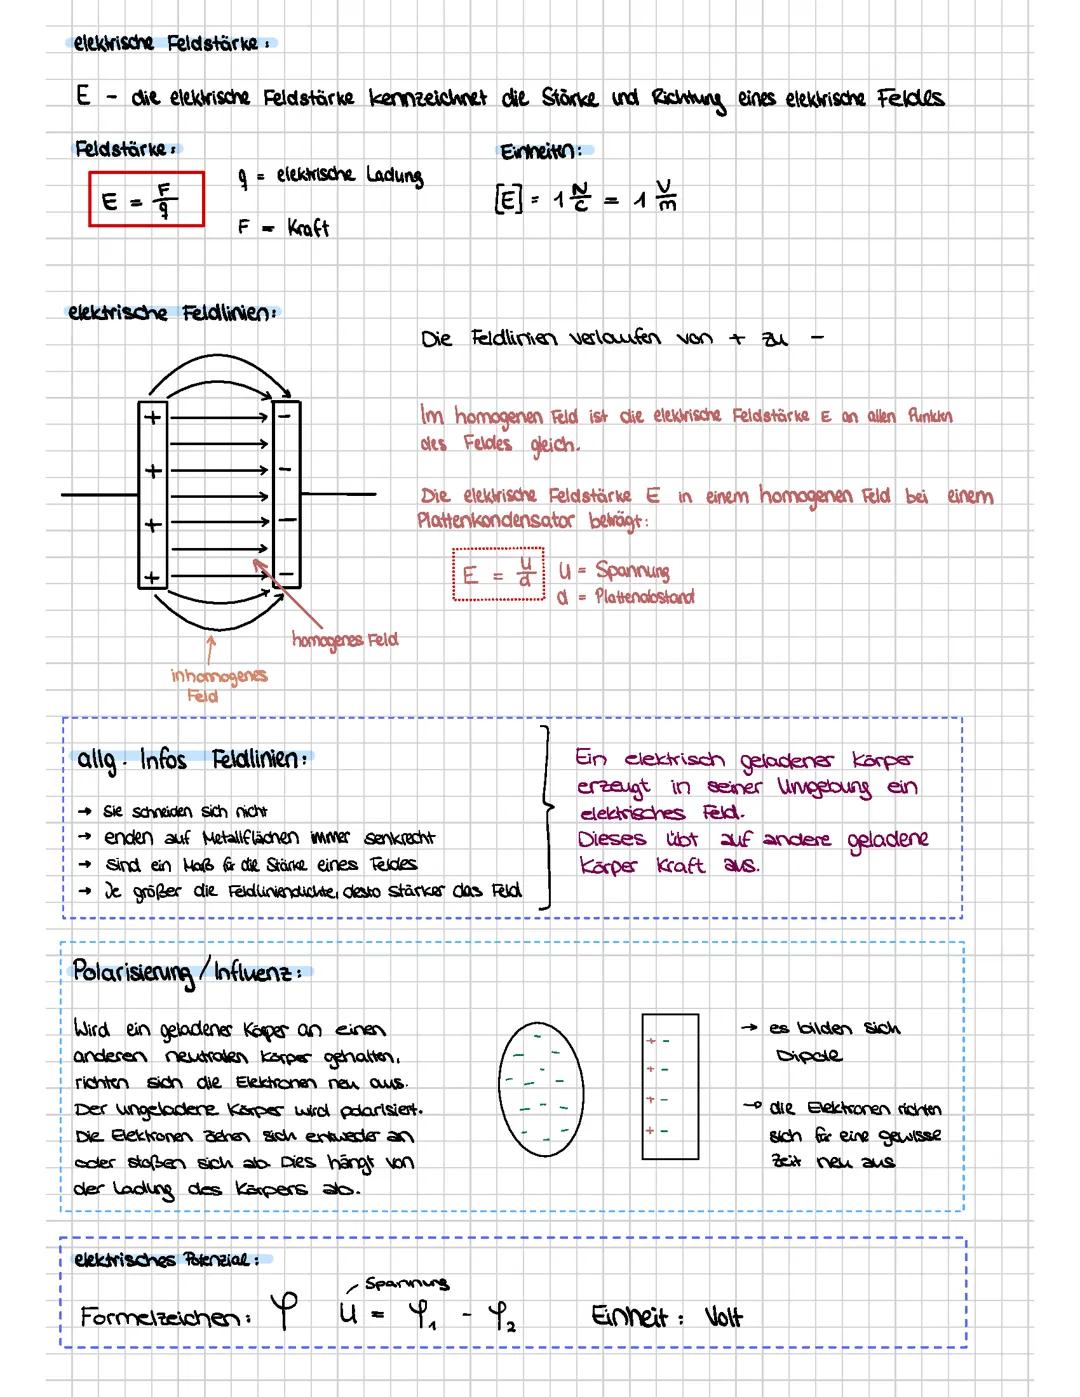 elektrische Feldstärke:
E - die elektrische Feldstärke kennzeichnet die Stärke und Richtung eines elektrische Feldes
Feldstärke:
Einheiten:
E = F/q
q = elektrische Ladung
F = Kraft
[E] = 1 N/C = 1 V/m
elektrische Feldlinien:
Die Feldlinien verlaufen von + zu -
+ -
+ -
+ -
+ -
Im homogenen Feld ist die elektrische Feldstärke E an allen Punkten
des Feldes gleich.
Die elektrische Feldstärke E in einem homogenen Feld bei einem
Plattenkondensator beträgt:
E = U/d
U = Spannung
d = Plattenabstand
homogenes Feld
inhomogenes
Feld
allg. Infos Feldlinien:
→ Sie schneiden sich nicht
→ enden auf Metallflächen immer senkrecht
→ sind ein Maß für die Stärke eines Feldes
→ Je größer die Feldliniendichte, desto stärker das Feld
Ein elektrisch geladener Körper
erzeugt in seiner Umgebung ein
elektrisches Feld.
Dieses übt auf andere geladene
Körper Kraft aus.
Polarisierung / Influenz:
Wird ein geladener Körper an einen
anderen neutralen Körper gehalten,
richten sich die Elektronen neu aus.
Der ungeladene Körper wird polarisiert.
Die Elektronen ziehen sich entweder an
oder stoßen sich ab. Dies hängt von
der Ladung des Körpers ab.
+ -
+ -
+ -
+ -
→ es bilden sich
Dipole
→ die Elektronen richten
sich für eine gewisse
Zeit neu aus
elektrisches Potenzial:
Spannung
Formelzeichen: φ U = φ₁ - φ₂ Einheit: Volt